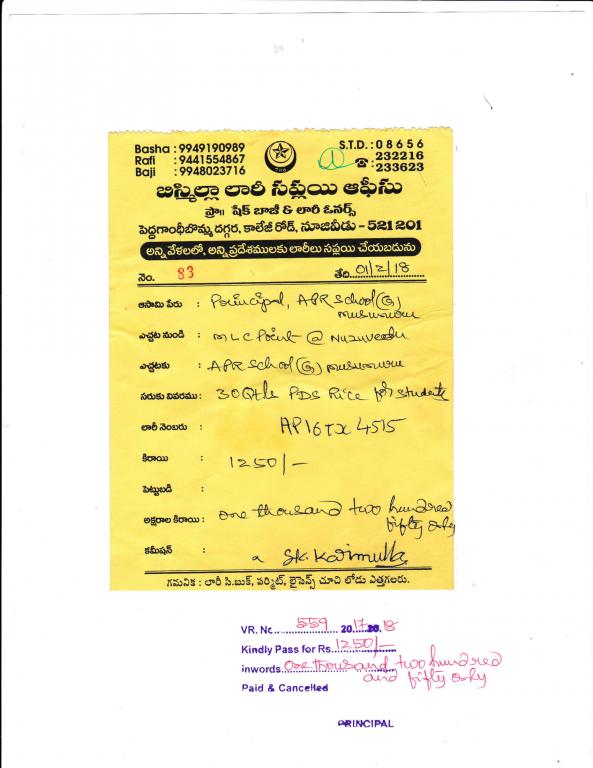 Basha : 9949190989
Rafi : 9441554867
Baji : 9948023716
S.T.D. : 08656
① ☎ : 232216
: 233623
బిస్మిల్లా లారీ సప్లయి ఆఫీసు
ప్రొ॥ షేక్ బాజీ & లారీ ఓనర్స్
పెద్దగాంధీబొమ్మ దగ్గర, కాలేజీ రోడ్, నూజివీడు - 521 201
అన్ని వేళలలో, అన్ని ప్రదేశములకు లారీలు సప్లయి చేయబడును
నెం. 83 తేది 01/2/18
ఆసామి పేరు : Principal, APR School(G)
musunuru
ఎచ్చట నుండి : MLC Point @ Nuzuveedu
ఎచ్చటకు : APR School (G) musunuru
సరుకు వివరము : 30 Qtls PDS Rice for students
లారీ నెంబరు : AP16TX 4515
కిరాయి : 1250/-
పెట్టుబడి :
అక్షరాల కిరాయి : one thousand two hundred
fifty only
కమీషన్ : Sk. Karimulla
గమనిక : లారీ సి.బుక్, పర్మిట్, లైసెన్స్ చూచి లోడు ఎత్తగలరు.
VR. No. 559 2017.20.18
Kindly Pass for Rs. 1250/-
inwords one thousand two hundred
and fifty only
Paid & Cancelled
PRINCIPAL